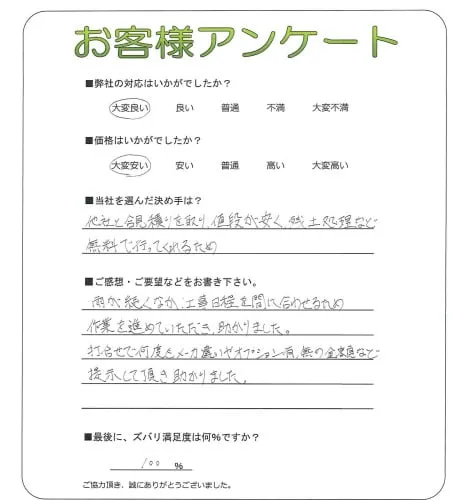 お客様アンケート
■弊社の対応はいかがでしたか？
大変良い 良い 普通 不満 大変不満
■価格はいかがでしたか？
大変安い 安い 普通 高い 大変高い
■当社を選んだ決め手は？
他社と合見積りを取り、値段が安く、残土処理など
無料で行ってくれるため
■ご感想・ご要望などをお書き下さい。
雨が続くなか、工事日程を間に合わせるため
作業を進めていただき、助かりました。
打合せで何度もメーカ違いやオプション有、無の金額など
提示して頂き助かりました。
■最後に、ズバリ満足度は何％ですか？
100 ％
ご協力頂き、誠にありがとうございました。